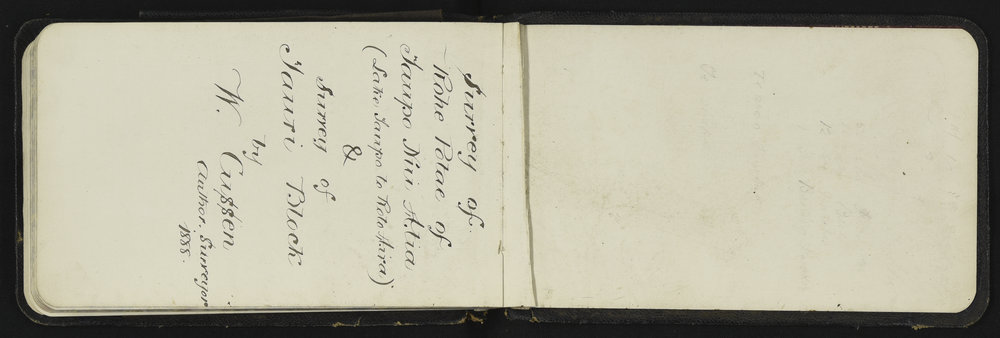 Survey of
Rohe Potae of
Taupo Nui Atia
(Lake Taupo to Roto Aira)
&
Survey of
Tauri Block
by
W. Cussen
Author. Surveyor
1888.